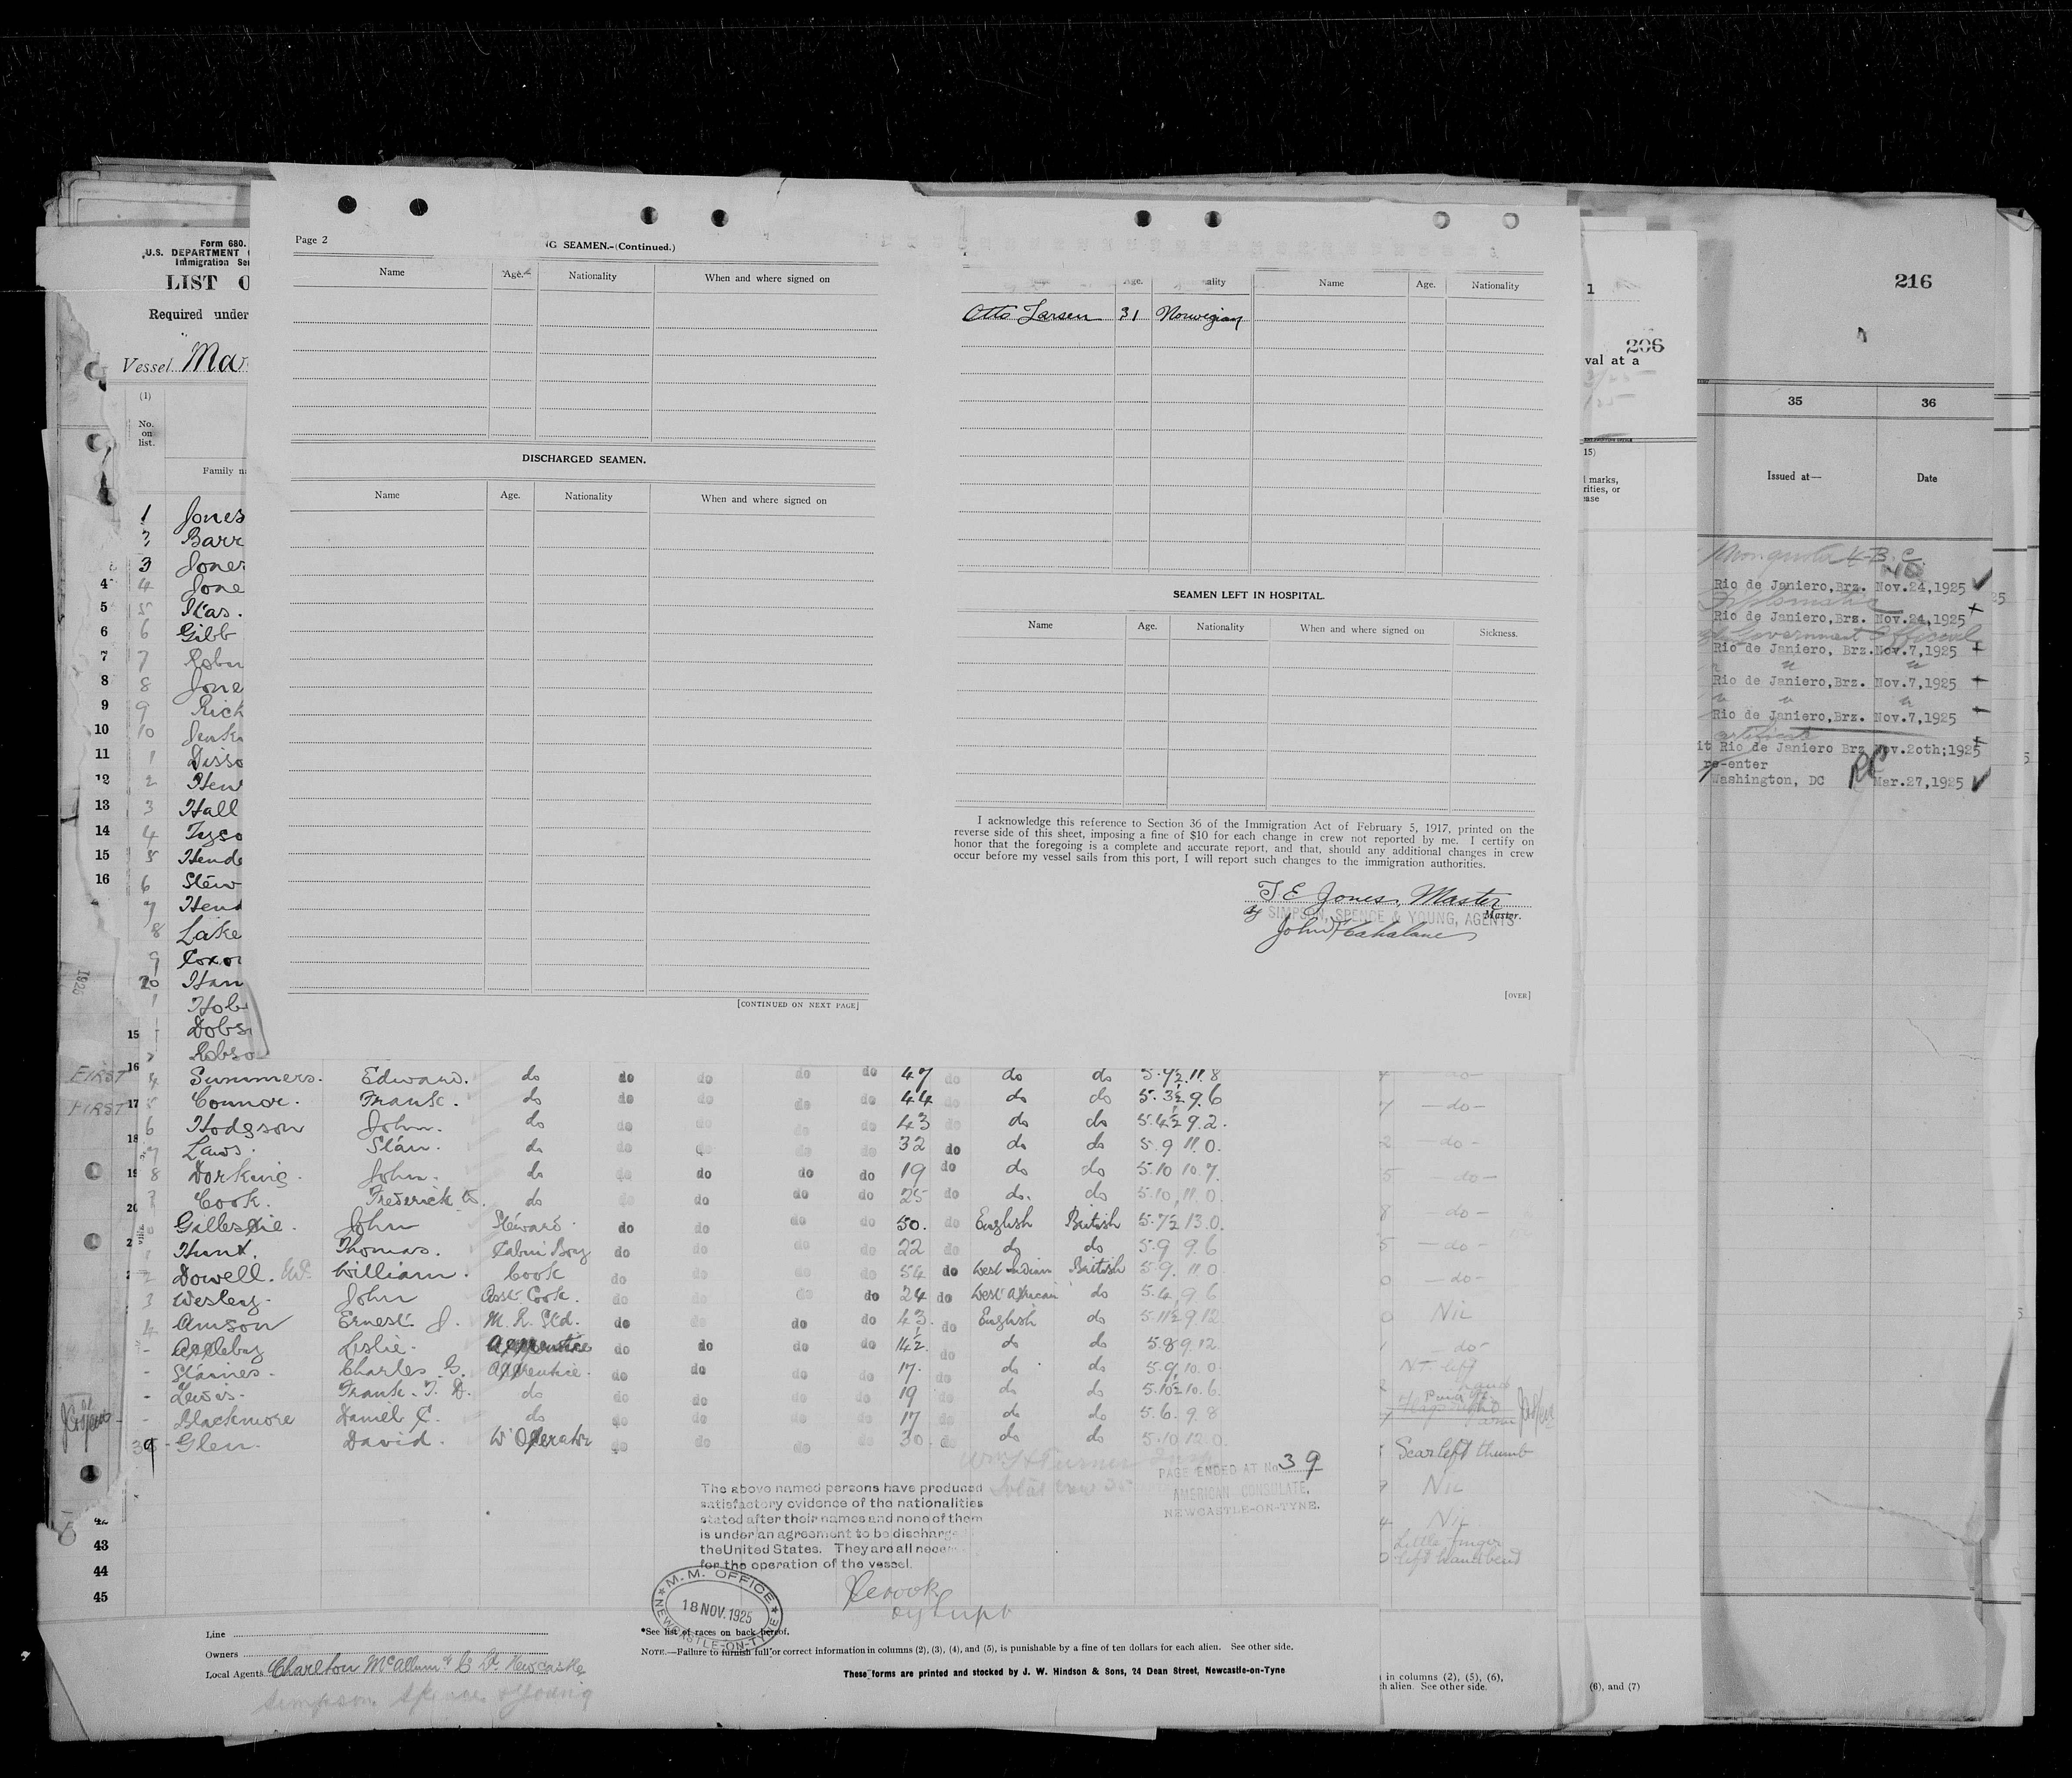 Page 2
G SEAMEN.-(Continued.)
Name Age. Nationality When and where signed on
DISCHARGED SEAMEN.
Name Age. Nationality When and where signed on
[CONTINUED ON NEXT PAGE]
Age. ality Name Age. Nationality
Otto Larsen 31 Norwegian
SEAMEN LEFT IN HOSPITAL.
Name Age. Nationality When and where signed on Sickness.
I acknowledge this reference to Section 36 of the Immigration Act of February 5, 1917, printed on the
reverse side of this sheet, imposing a fine of $10 for each change in crew not reported by me. I certify on
honor that the foregoing is a complete and accurate report, and that, should any additional changes in crew
occur before my vessel sails from this port, I will report such changes to the immigration authorities.
T. E. Jones, Master
Master.
By SIMPSON, SPENCE & YOUNG, AGENTS
[OVER]
Form 680.
U.S. DEPARTMENT
Immigration Se
LIST O
Required under
Vessel Ma
(1)
No.
on
list.
Family n
1 Jones
2 Barr
3 Jones
4 4 Jone
5 5
6 6 Gibb
7 7 Robin
8 8 Jone
9 9 Rich
10 10 Jenk
11 1 Disso
12 2 Hen
13 3 Hall
14 4 Tyso
15 5 Hende
16 6 Stew
7 Hend
8 Lake
9 Coxo
20 Han
1 Hob
15 Dobs
Robso
16 FIRST 4 Summers. Edward. do do do do do 47 do do do 5.9½ 11.8
17 FIRST 5 Connor. Frank. do do do do do 44 do do do 5.3½ 9.6
6 Hodgson John. do do do do do 43 do do do 5.4½ 9.2.
18 7 Laws. Stan. do do do do do 32 do do do 5.9 11.0.
19 8 Dorking. John. do do do do do 19 do do do 5.10 10.7.
Cook. Frederick do do do do do 25 do do. do 5.10 11.0.
Gillespie. John Steward. do do do do 50. do English British 5.7½ 13.0.
Hunt. Thomas. Cabin Boy do do do do 22 do do do 5.9 9.6
2 Dowell. William. Cook do do do do 54 do West Indian British 5.9. 11.0
3 Wesley. John Asst. Cook. do do do do 24 do West African do 5.4. 9.6
4 Amson Ernest J. M. R. Std. do do do do 43. do English do 5.11½ 9.12
- Appleby Leslie. Apprentice do do do do 14½. do do do 5.8 9.12
- Staines. Charles. G. Apprentice. do do do do 17. do do do 5.9 10.0
- Lewis. Frank. T. D. do do do do do 19 do do do 5.10½ 10.6.
- Blackmore Daniel C. do do do do do 17 do do do 5.6. 9.8
39 Glen. David. W Operator do do do do 30. do do do 5.10 12.0.
PAGE ENDED AT No 39
AMERICAN CONSULATE.
NEWCASTLE-ON-TYNE.
The above named persons have produced
satisfactory evidence of the nationalities
stated after their names and none of them
is under an agreement to be discharge
the United States. They are all nece
for the operation of the vessel.
M. M. OFFICE
18 NOV. 1925
NEWCASTLE-ON-TYNE
43
44
45
Line
Owners
Local Agents Charlton McAllum & Co Ld. Newcastle
Simpson Spence & Young
*See list of races on back hereof.
NOTE.—Failure to furnish full or correct information in columns (2), (3), (4), and (5), is punishable by a fine of ten dollars for each alien. See other side.
These forms are printed and stocked by J. W. Hindson & Sons, 24 Dean Street, Newcastle-on-Tyne
— do —
— do —
— do —
— do —
— do —
— do —
Nil
— do —
Scar left thumb
Nil
Nil
Little finger
left hand bend
in columns (2), (5), (6),
h alien. See other side.
(6), and (7)
1
206
val at a
15)
l marks,
rities, or
ease
216
35 36
Issued at— Date
Rio de Janiero,Brz. Nov.24,1925
Diplomatic
Rio de Janiero,Brz. Nov.24,1925
Government Official
Rio de Janiero, Brz. Nov.7,1925
Rio de Janiero,Brz. Nov.7,1925
Rio de Janiero,Brz. Nov.7,1925
certificate
it Rio de Janiero Brz Nov.2oth;1925
re-enter
Washington, DC Mar.27,1925